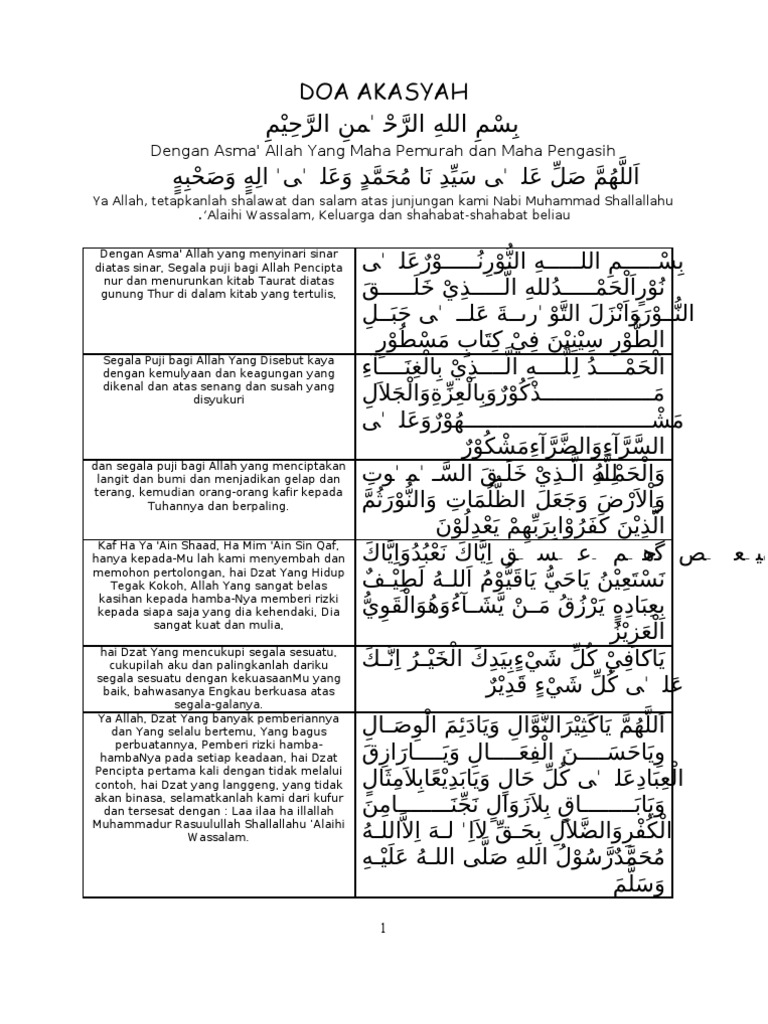 DOA AKASYAH
بِسْمِ اللهِ الرَّحْمٰنِ الرَّحِيْمِ
Dengan Asma' Allah Yang Maha Pemurah dan Maha Pengasih
اَللَّهُمَّ صَلِّ عَلٰى سَيِّدِ نَا مُحَمَّدٍ وَعَلٰىٰ الِهِ وَصَحْبِهِ
Ya Allah, tetapkanlah shalawat dan salam atas junjungan kami Nabi Muhammad Shallallahu
.‘Alaihi Wassalam, Keluarga dan shahabat-shahabat beliau
Dengan Asma' Allah yang menyinari sinar
diatas sinar, Segala puji bagi Allah Pencipta
nur dan menurunkan kitab Taurat diatas
gunung Thur di dalam kitab yang tertulis,
بِسْمِ اللهِ النُّوْرِنُوْرٌعَلٰى
نُوْرٍاَلْحَمْدُللهِ الَّذِيْ خَلَقَ
النُّوْرَوَاَنْزَلَ التَّوْرٰىةَ عَلٰى جَبَلِ
الطُّوْرِ سِيْنِيْنَ فِيْ كِتَابٍ مَسْطُوْرٍ
Segala Puji bagi Allah Yang Disebut kaya
dengan kemulyaan dan keagungan yang
dikenal dan atas senang dan susah yang
disyukuri
اَلْحَمْدُ لِلَّهِ الَّذِيْ بِالْغِنَاءِ
مَذْكُوْرٌوَبِالْعِزَّةِوَالْجَلاَلِ
مَشْهُوْرٌوَعَلٰى
السَّرَّآءِوَالضَّرَّآءِمَشْكُوْرٌ
dan segala puji bagi Allah yang menciptakan
langit dan bumi dan menjadikan gelap dan
terang, kemudian orang-orang kafir kepada
Tuhannya dan berpaling.
وَالْحَمْدُلِلَّهِ الَّذِيْ خَلَقَ السَّمٰوٰتِ
وَاْلاَرْضَ وَجَعَلَ الظُّلُمَاتِ وَالنُّوْرَثُمَّ
الَّذِيْنَ كَفَرُوْابِرَبِّهِمْ يَعْدِلُوْنَ
Kaf Ha Ya 'Ain Shaad, Ha Mim 'Ain Sin Qaf,
hanya kepada-Mu lah kami menyembah dan
memohon pertolongan, hai Dzat Yang Hidup
Tegak Kokoh, Allah Yang sangat belas
kasihan kepada hamba-Nya memberi rizki
kepada siapa saja yang dia kehendaki, Dia
sangat kuat dan mulia,
كهيعص حم عسق اِيَّاكَ نَعْبُدُوَاِيَّاكَ
نَسْتَعِيْنُ يَاحَيُّ يَاقَيُّوْمُ اَللهُ لَطِيْفٌ
بِعِبَادِهِ يَرْزُقُ مَنْ يَّشَآءُوَهُوَالْقَوِيُّ
الْعَزِيْزُ
hai Dzat Yang mencukupi segala sesuatu,
cukupilah aku dan palingkanlah dariku
segala sesuatu dengan kekuasaanMu yang
baik, bahwasanya Engkau berkuasa atas
segala-galanya.
يَاكَافِيْ كُلِّ شَيْءٍبِيَدِكَ الْخَيْرُ اِنَّكَ
عَلٰى كُلِّ شَيْءٍ قَدِيْرٌ
Ya Allah, Dzat Yang banyak pemberiannya
dan Yang selalu bertemu, Yang bagus
perbuatannya, Pemberi rizki hamba-
hambaNya pada setiap keadaan, hai Dzat
Pencipta pertama kali dengan tidak melalui
contoh, hai Dzat yang langgeng, yang tidak
akan binasa, selamatkanlah kami dari kufur
dan tersesat dengan : Laa ilaa ha illallah
Muhammadur Rasuulullah Shallallahu 'Alaihi
Wassalam.
اَللَّهُمَّ يَاكَثِيْرَالنَّوَّالِ وَيَادَئِمَ الْوِصَالِ
وِيَاحَسَنَ الْفِعَالِ وَيَارَازِقَ
الْعِبَادِعَلٰى كُلِّ حَالٍ وَيَابَدِيْعًابِلاَمِثَالٍ
وَيَابَاقٍ بِلاَزَوَالٍ نَجِّنَامِنَ
الْكُفْرِوَالضَّلاَلِ بِحَقِّ لاَاِلٰهَ اِلاَّاللهُ
مُحَمَّدٌرَّسُوْلُ اللهِ صَلَّى اللهُ عَلَيْهِ
وَسَلَّمَ
1